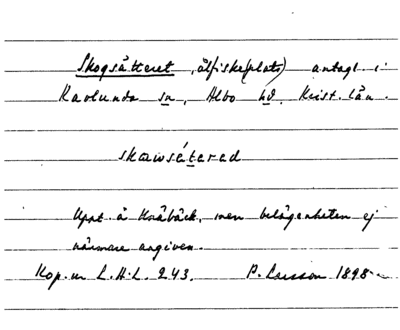 Skogsätteret, ålfiske(plats) antagl. i
Ravlunda sn, Albo hd. Krist. län.
skɷwsátered
Uppt. å Knäbäck, men belägenheten ej
närmare angiven.
Kop. ur L.H.L. 243. P. Larsson 1898